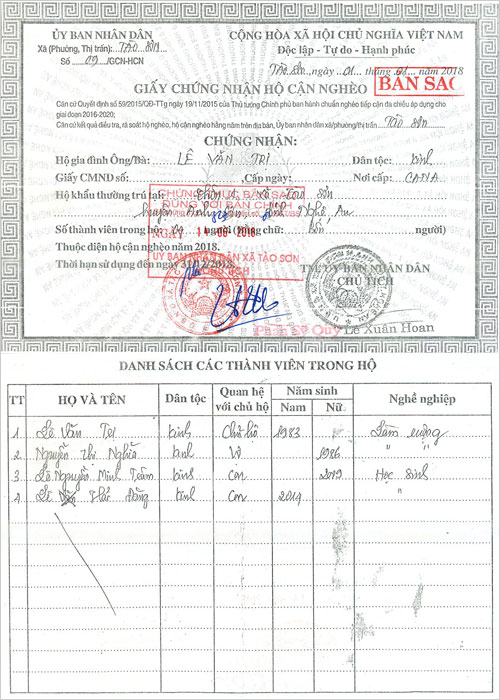 ỦY BAN NHÂN DÂN
CỘNG HÒA XÃ HỘI CHỦ NGHĨA VIỆT NAM
Xã (Phường, Thị trấn): TÀO SƠN
Độc lập - Tự do - Hạnh phúc
Số 09 /GCN-HCN
Tào Sơn, ngày 01 tháng 01 năm 2018
GIẤY CHỨNG NHẬN HỘ CẬN NGHÈO
BẢN SAO
Căn cứ Quyết định số 59/2015/QĐ-TTg ngày 19/11/2015 của Thủ tướng Chính phủ ban hành chuẩn nghèo tiếp cận đa chiều áp dụng cho
giai đoạn 2016-2020;
Căn cứ kết quả điều tra, rà soát hộ nghèo, hộ cận nghèo hằng năm trên địa bàn, Ủy ban nhân dân xã/phường/thị trấn TÀO SƠN
CHỨNG NHẬN:
Hộ gia đình Ông/Bà: LÊ VĂN TRÌ Dân tộc: Kinh
Giấy CMND số: ,Cấp ngày: Nơi cấp: CANA
Hộ khẩu thường trú tại: Thôn Xã Tào Sơn
huyện Anh Sơn tỉnh Nghệ An
CHỨNG THỰC BẢN SAO
ĐÚNG VỚI BẢN CHÍNH
Số thành viên trong hộ: 04 người (bằng chữ: bốn người)
NGÀY 14 -09- 2018
Thuộc diện hộ cận nghèo năm 2018.
ỦY BAN NHÂN DÂN XÃ TÀO SƠN
Thời hạn sử dụng đến ngày 31/12/2018.
CHỦ TỊCH
TM. ỦY BAN NHÂN DÂN
CHỦ TỊCH
Lê Xuân Hoan
DANH SÁCH CÁC THÀNH VIÊN TRONG HỘ
TT HỌ VÀ TÊN Dân tộc Quan hệ với chủ hộ Năm sinh Nam Nữ Nghề nghiệp
1 Lê Văn Trì kinh Chủ hộ 1983 Làm ruộng
2 Nguyễn Thị Nghĩa kinh Vợ 1986 "
3 Lê Nguyễn Minh Tâm kinh Con Học sinh
4 Lê Đăng kinh con 2014 "